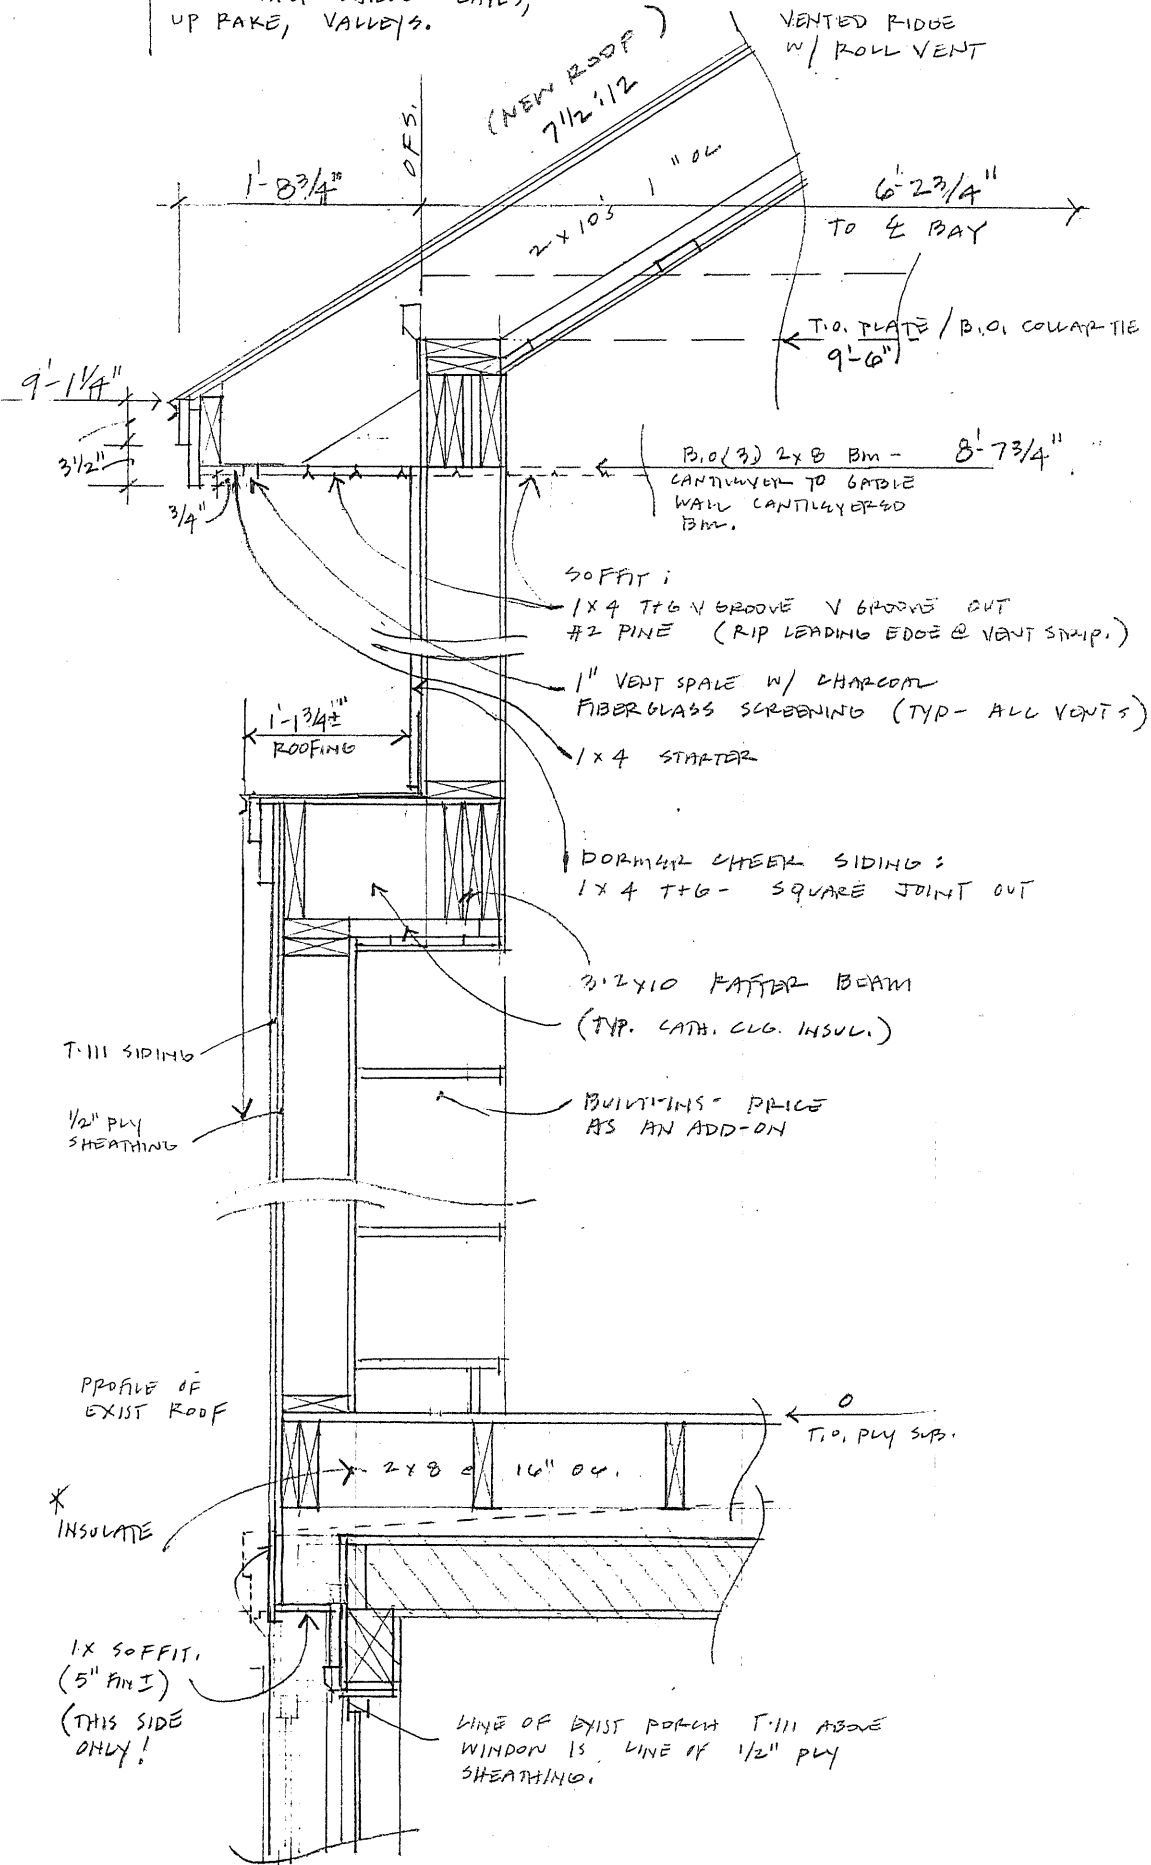 UP RAKE, VALLEYS.
VENTED RIDGE
W/ ROLL VENT
(NEW ROOF)
7 1/2 : 12
O F S.
1'-8 3/4"
2 x 10's 1 " OC
6'-2 3/4"
TO ℄ BAY
T.O. PLATE / B.O. COLLAR TIE
9'-6"
9'-1 1/4"
3 1/2"
3/4"
B.O (3) 2x8 BM -
CANTILIVER TO GABLE
WALL CANTILIVERED
BM.
8'-7 3/4"
SOFFIT :
1 x 4 T+G V GROOVE V GROOVE OUT
#2 PINE (RIP LEADING EDGE @ VENT STRIP.)
1" VENT SPACE W/ CHARCOAL
FIBERGLASS SCREENING (TYP - ALL VENTS)
1 x 4 STARTER
1'-1 3/4" ±
ROOFING
DORMER CHEEK SIDING :
1 x 4 T+G - SQUARE JOINT OUT
3·2x10 RAFTER BEAM
(TYP. CATH. CLG. INSUL.)
T-111 SIDING
1/2" PLY
SHEATHING
BUILT-INS - PRICE
AS AN ADD-ON
PROFILE OF
EXIST ROOF
0
T.O. PLY SUB.
2 x 8 @ 16" OC.
*
INSULATE
1X SOFFIT.
(5" FIN ±)
(THIS SIDE
ONLY!
LINE OF EXIST PORCH T-111 ABOVE
WINDOW IS LINE OF 1/2" PLY
SHEATHING.